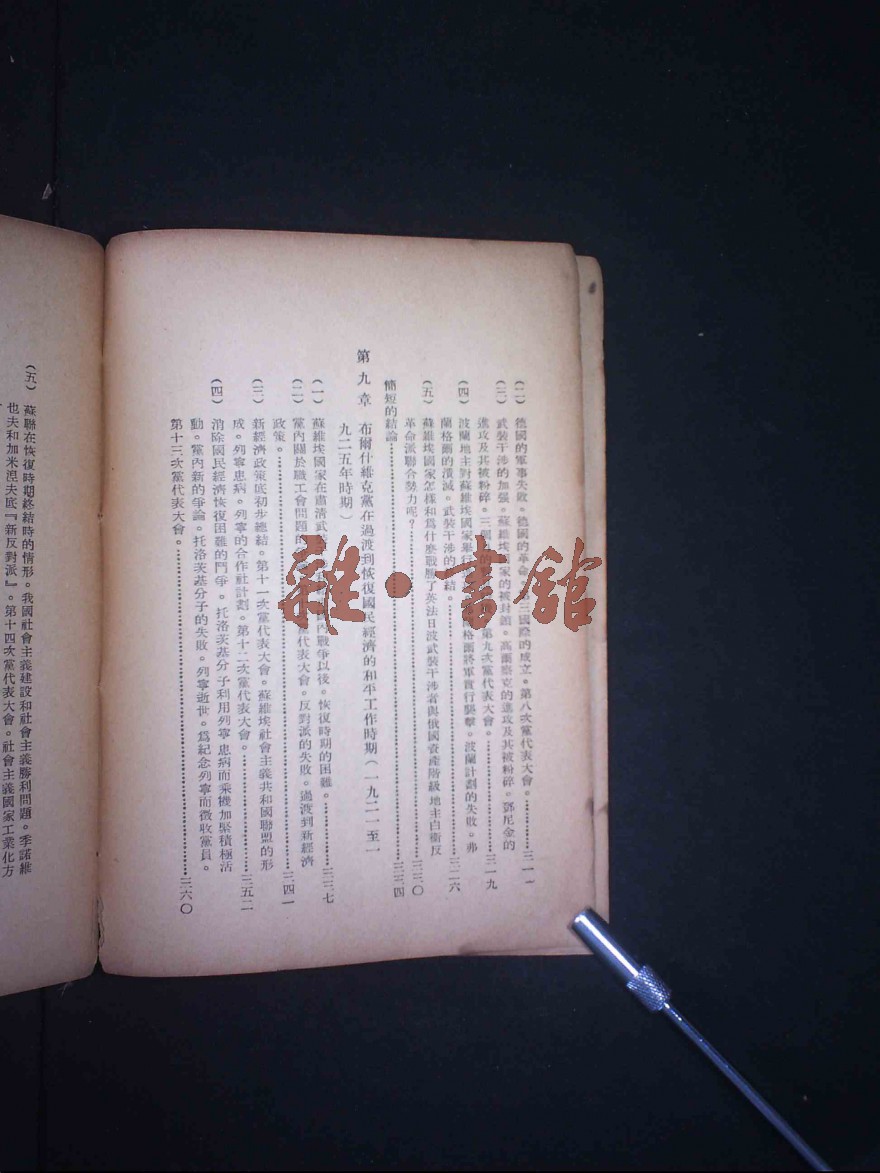 (二) 德國的軍事失敗。德國的革命三國際的成立。第八次黨代表大會。……三一一
(三) 武裝干涉的加强。蘇維埃國家的被封鎖。高爾察克的進攻及其被粉碎。鄧尼金的
進攻及其被粉碎。三個第九次黨代表大會。……三一九
(四) 波蘭地主對蘇維埃國家舉行格爾將軍實行襲擊。波蘭計劃的失敗。弗
蘭格爾的潰滅。武裝干涉的終結。……三二六
(五) 蘇維埃國家怎樣和爲什麽戰勝了英法日波武裝干涉者與俄國資產階級地主白衛反
革命派聯合勢力呢？……三三〇
簡短的結論……三三四
第九章 布爾什維克黨在過渡到恢復國民經濟的和平工作時期(一九二一至一
九二五年時期)
(一) 蘇維埃國家在肅清武內戰争以後。恢復時期的困難。……三三七
(二) 黨內關於職工會問題的代表大會。反對派的失敗。過渡到新經濟
政策。……三四一
(三) 新經濟政策底初步總結。第十一次黨代表大會。蘇維埃社會主義共和國聯盟的形
成。列寧患病。列寧的合作社計劃。第十二次黨代表大會。……三五二
(四) 消除國民經濟恢復困難的鬥爭。托洛茨基分子利用列寧患病而乘機加緊積極活
動。黨內新的爭論。托洛茨基分子的失敗。列寧逝世。爲紀念列寧而徵收黨員。
第十三次黨代表大會。……三六〇
(五) 蘇聯在恢復時期終結時的情形。我國社會主義建設和社會主義勝利問題。季諾維
也夫和加米涅夫底『新反對派』。第十四次黨代表大會。社會主義國家工業化方
雜·書館